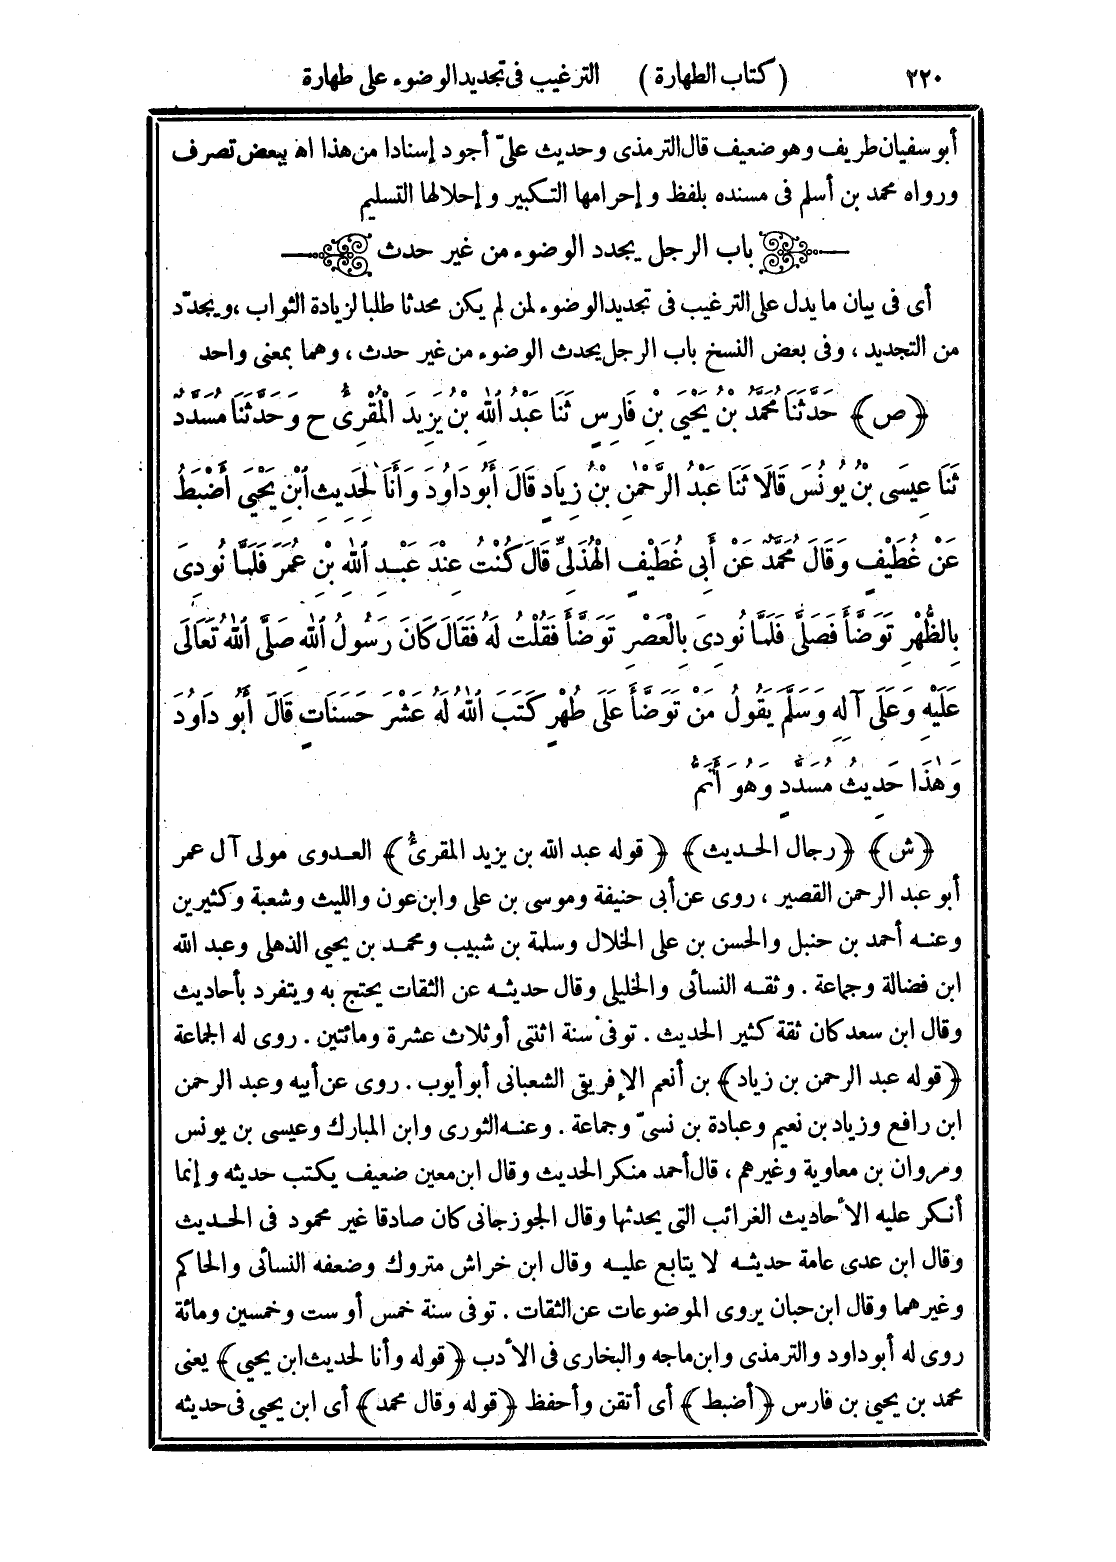 ٢٢٠ (كتاب الطهارة) الترغيب فى تجديد الوضوء على طهارة
أبو سفيان طريف وهو ضعيف قال الترمذى وحديث علىّ أجود إسنادا من هذا اه ببعض تصرف
ورواه محمد بن أسلم فى مسنده بلفظ وإحرامها التكبير وإحلالها التسليم
باب الرجل يجدد الوضوء من غير حدث
أى فى بيان ما يدل على الترغيب فى تجديد الوضوء لمن لم يكن محدثا طلبا لزيادة الثواب ، ويجدّد
من التجديد ، وفى بعض النسخ باب الرجل يحدث الوضوء من غير حدث ، وهما بمعنى واحد
﴿ص﴾ حَدَّثَنَا مُحَمَّدُ بْنُ يَحْيَى بْنِ فَارِسٍ ثَنَا عَبْدُ اللهِ بْنُ يَزِيدَ الْمُقْرِىُّ ح وَحَدَّثَنَا مُسَدَّدٌ
ثَنَا عِيسَى بْنُ يُونُسَ قَالَا ثَنَا عَبْدُ الرَّحْمٰنِ بْنُ زِيَادٍ قَالَ أَبُو دَاوُدَ وَأَنَا لِحَدِيثِ ابْنِ يَحْيَى أَضْبَطُ
عَنْ غُطَيْفٍ وَقَالَ مُحَمَّدٌ عَنْ أَبِى غُطَيْفٍ الْهُذَلِىِّ قَالَ كُنْتُ عِنْدَ عَبْدِ اللهِ بْنِ عُمَرَ فَلَمَّا نُودِىَ
بِالظُّهْرِ تَوَضَّأَ فَصَلَّى فَلَمَّا نُودِىَ بِالْعَصْرِ تَوَضَّأَ فَقُلْتُ لَهُ فَقَالَ كَانَ رَسُولُ اللهِ صَلَّى اللهُ تَعَالَى
عَلَيْهِ وَعَلَى آلِهِ وَسَلَّمَ يَقُولُ مَنْ تَوَضَّأَ عَلَى طُهْرٍ كَتَبَ اللهُ لَهُ عَشْرَ حَسَنَاتٍ قَالَ أَبُو دَاوُدَ
وَهٰذَا حَدِيثُ مُسَدَّدٍ وَهُوَ أَتَمُّ
﴿ش﴾ ﴿رجال الحديث﴾ ﴿قوله عبد الله بن يزيد المقرىُّ﴾ العدوى مولى آل عمر
أبو عبد الرحمن القصير ، روى عن أبى حنيفة وموسى بن على وابن عون والليث وشعبة وكثيرين
وعنه أحمد بن حنبل والحسن بن على الخلال وسلمة بن شبيب ومحمد بن يحيى الذهلى وعبد الله
ابن فضالة وجماعة . وثقه النسائى والخليلى وقال حديثه عن الثقات يحتج به ويتفرد بأحاديث
وقال ابن سعد كان ثقة كثير الحديث . توفى سنة اثنتى أو ثلاث عشرة ومائتين . روى له الجماعة
﴿قوله عبد الرحمن بن زياد﴾ بن أنعم الإفريقى الشعبانى أبو أيوب . روى عن أبيه وعبد الرحمن
ابن رافع وزياد بن نعيم وعبادة بن نسىّ وجماعة . وعنه الثورى وابن المبارك وعيسى بن يونس
ومروان بن معاوية وغيرهم ، قال أحمد منكر الحديث وقال ابن معين ضعيف يكتب حديثه وإنما
أنكر عليه الأحاديث الغرائب التى يحدثها وقال الجوزجانى كان صادقا غير محمود فى الحديث
وقال ابن عدى عامة حديثه لا يتابع عليه وقال ابن خراش متروك وضعفه النسائى والحاكم
وغيرهما وقال ابن حبان يروى الموضوعات عن الثقات . توفى سنة خمس أو ست وخمسين ومائة
روى له أبو داود والترمذى وابن ماجه والبخارى فى الأدب ﴿قوله وأنا لحديث ابن يحيى﴾ يعنى
محمد بن يحيى بن فارس ﴿أضبط﴾ أى أتقن وأحفظ ﴿قوله وقال محمد﴾ أى ابن يحيى فى حديثه